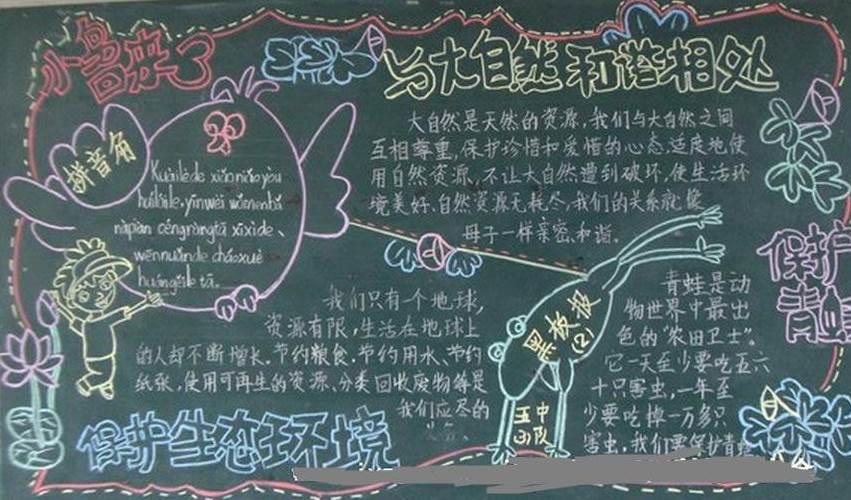 小鸟来了
拼音角
Kuàilède xiǎoniǎo yòu
huílaile, yīnwèi wǒmen bǎ
nàpiàn céngzàngtā xīxìde、
wēnnuǎnde cháoxué
huángěile tā。
与大自然和谐相处
大自然是天然的资源,我们与大自然之间
互相尊重,保护珍惜和爱惜的心态,适度地使
用自然资源,不让大自然遭到破坏,使生活环
境美好,自然资源无耗尽,我们的关系就像
母子一样亲密和谐。
我们只有一个地球,
资源有限,生活在地球上
的人却不断增长。节约粮食、节约用水、节约
纸张,使用可再生的资源、分类回收废物等是
我们应尽的
保护生态环境
黑板报
(2)
五中
山队
保护
青蛙
青蛙是动
物世界中最出
色的“农田卫士”。
它一天至少要吃五六
十只害虫,一年至
少要吃掉一万多只
害虫,我们要保护青蛙